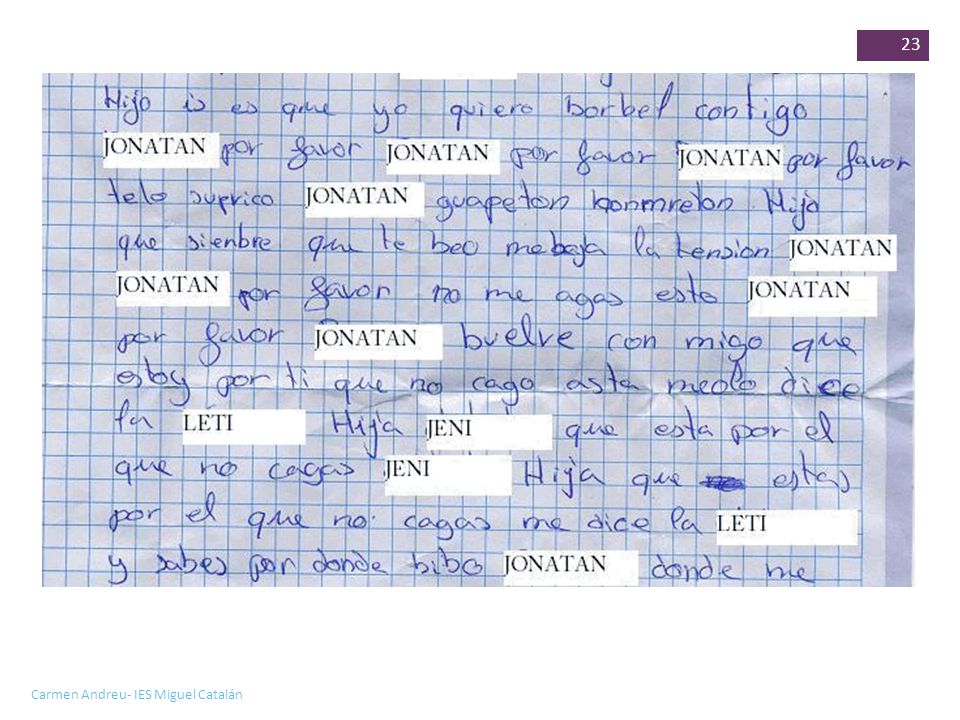 23
Hijo is es que yo quiero borbel contigo
JONATAN por favor JONATAN por favor JONATAN por favor
telo suprico JONATAN guapeton bonmreton Hijo
que sienbre que te beo mebaja la tension JONATAN
JONATAN por favor no me agas esto JONATAN
por favor JONATAN buelve con migo que
estoy por ti que no cago asta melo dice
la LETI Hija JENI que esta por el
que no cagas JENI Hija que estas
por el que no cagas me dice la LETI
y sabes por donde bibo JONATAN donde me
Carmen Andreu- IES Miguel Catalán